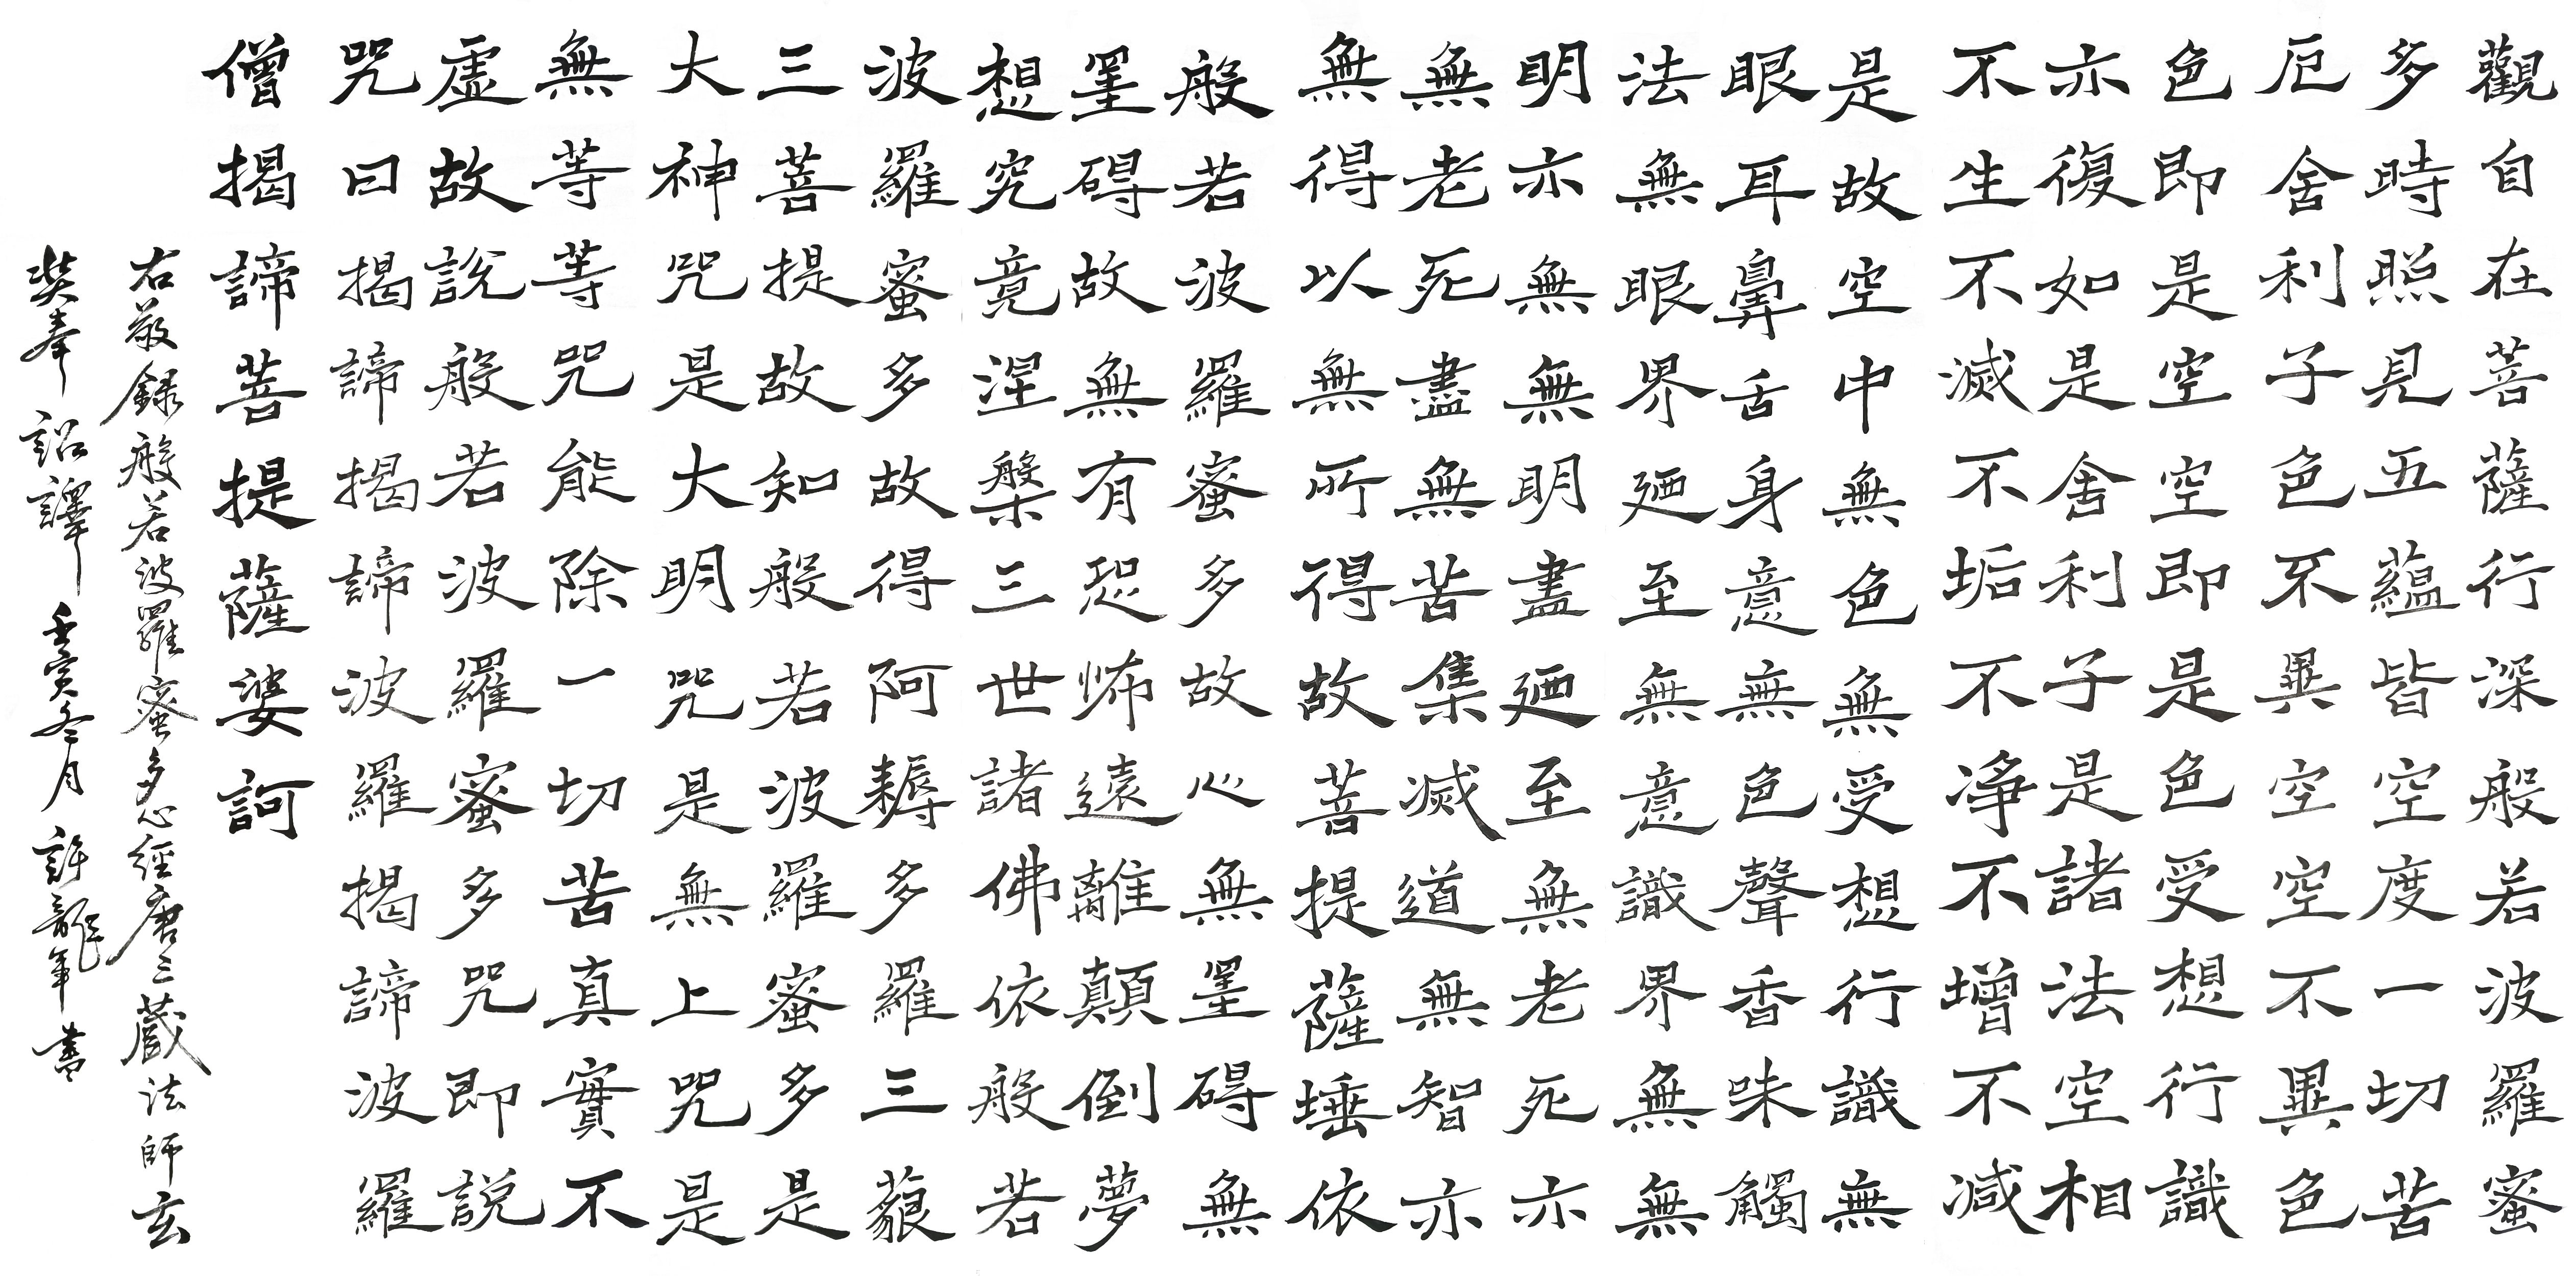 觀自在菩薩行深般若波羅蜜
多時照見五蘊皆空度一切苦
厄舍利子色不異空空不異色
色即是空空即是色受想行識
亦復如是舍利子是諸法空相
不生不滅不垢不淨不增不減
是故空中無色無受想行識無
眼耳鼻舌身意無色聲香味觸
法無眼界廼至無意識界無無
明亦無無明盡廼至無老死亦
無老死盡無苦集滅道無智亦
無得以無所得故菩提薩埵依
般若波羅蜜多故心無罣碍無
罣碍故無有恐怖遠離顛倒夢
想究竟涅槃三世諸佛依般若
波羅蜜多故得阿耨多羅三藐
三菩提故知般若波羅蜜多是
大神咒是大明咒是無上咒是
無等等咒能除一切苦真實不
虛故說般若波羅蜜多咒即說
咒曰揭諦揭諦波羅揭諦波羅
僧揭諦菩提薩婆訶
右敬錄般若波羅蜜多心經唐三藏法師玄
奘奉詔譯 壬寅冬月 許龍年書